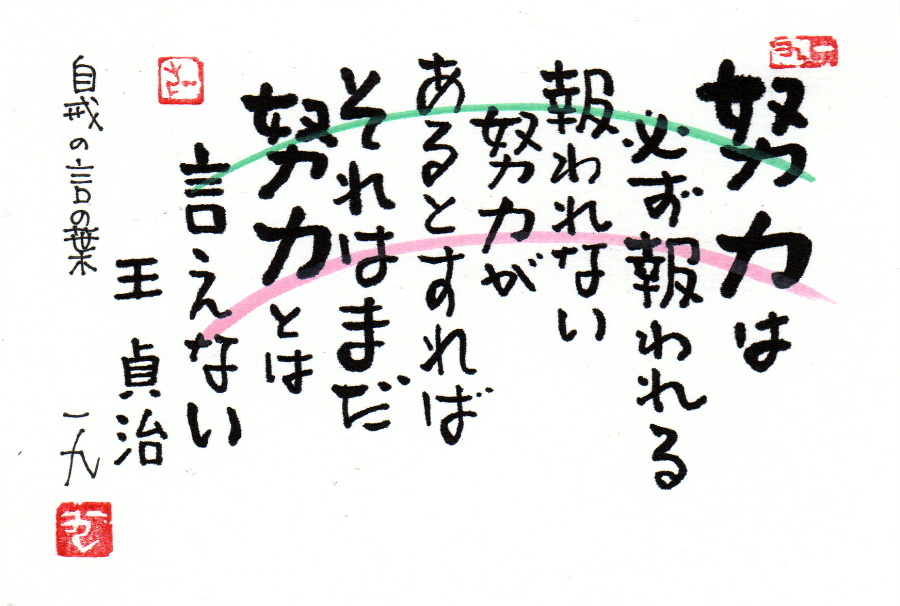 努力は
必ず報われる
報われない
努力が
あるとすれば
それはまだ
努力とは
言えない
王貞治
自戒の言の葉
一九